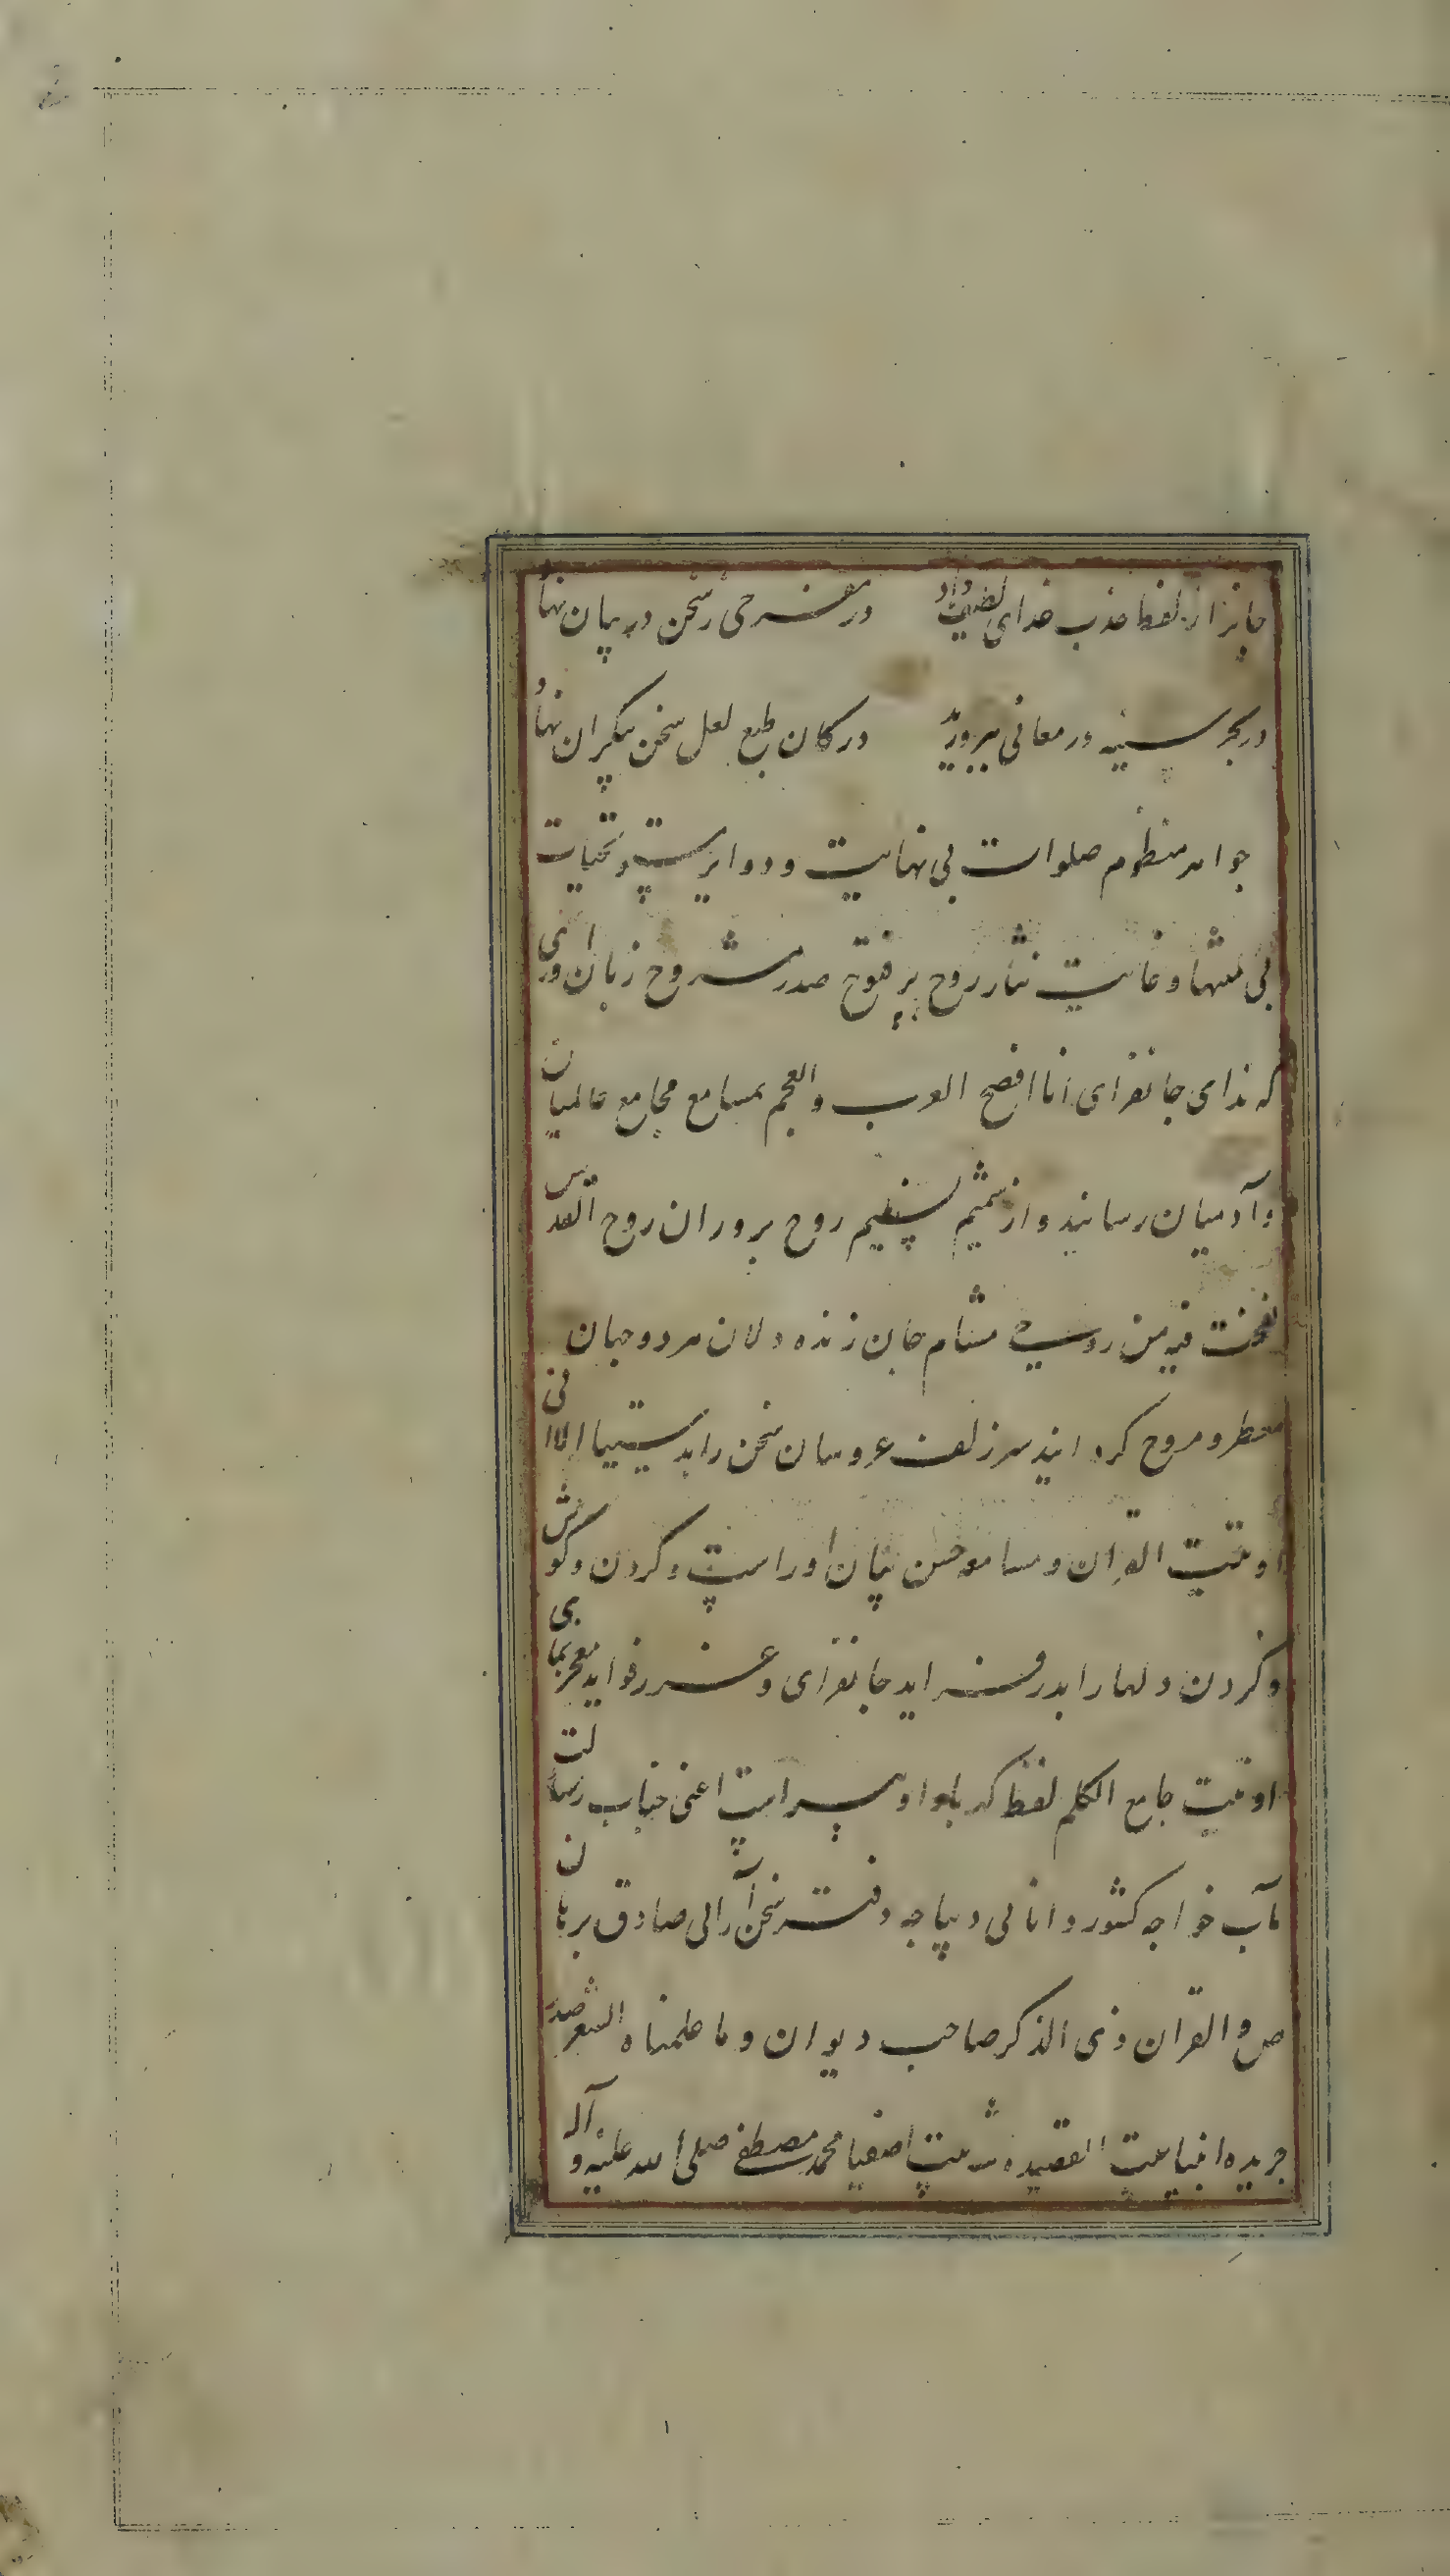 جانرا ز لفظ عذب غذای لطیف داد در مفرحی ز سخن در بیان نهاد
در بحر سینه در معانی بپرورید در کان طبع لعل سخن بیکران نهاد
جواهر منظوم صلوات بی نهایت و دوایر سپت و تحیات
بی منتها و غایت نثار روح پر فتوح صدر مشروح زبان آوری
که ندای جانفزای انا افصح العرب والعجم بمسامع مجامع عالمیان
و آدمیان رسانید و از شمیم نسیم روح پروران روح القدس
نفخت فیه من روحی مشام جان زنده دلان هر دو جهان
معطر و مروح کردانید سر زلف عروسان سخن را بدست بیا انی
اوتیت القران و مسامع حسن بیان اوراست و کردن و کوش
و کردن دلها را بدر فراید جانفزای و غرر فواید معجز نمای
اوتیت جامع الکلم لفظ کهربار او پیراست اعنی جناب رسالت
مآب خواجه کشور دانائی دیباجه دفتر سخن آرائی صادق برهان
ص والقران ذی الذکر صاحب دیوان و ما علمناه الشعر صدر
جریده انبیا بیت القصیده اصفیا محمد مصطفی صلی الله علیه و آله